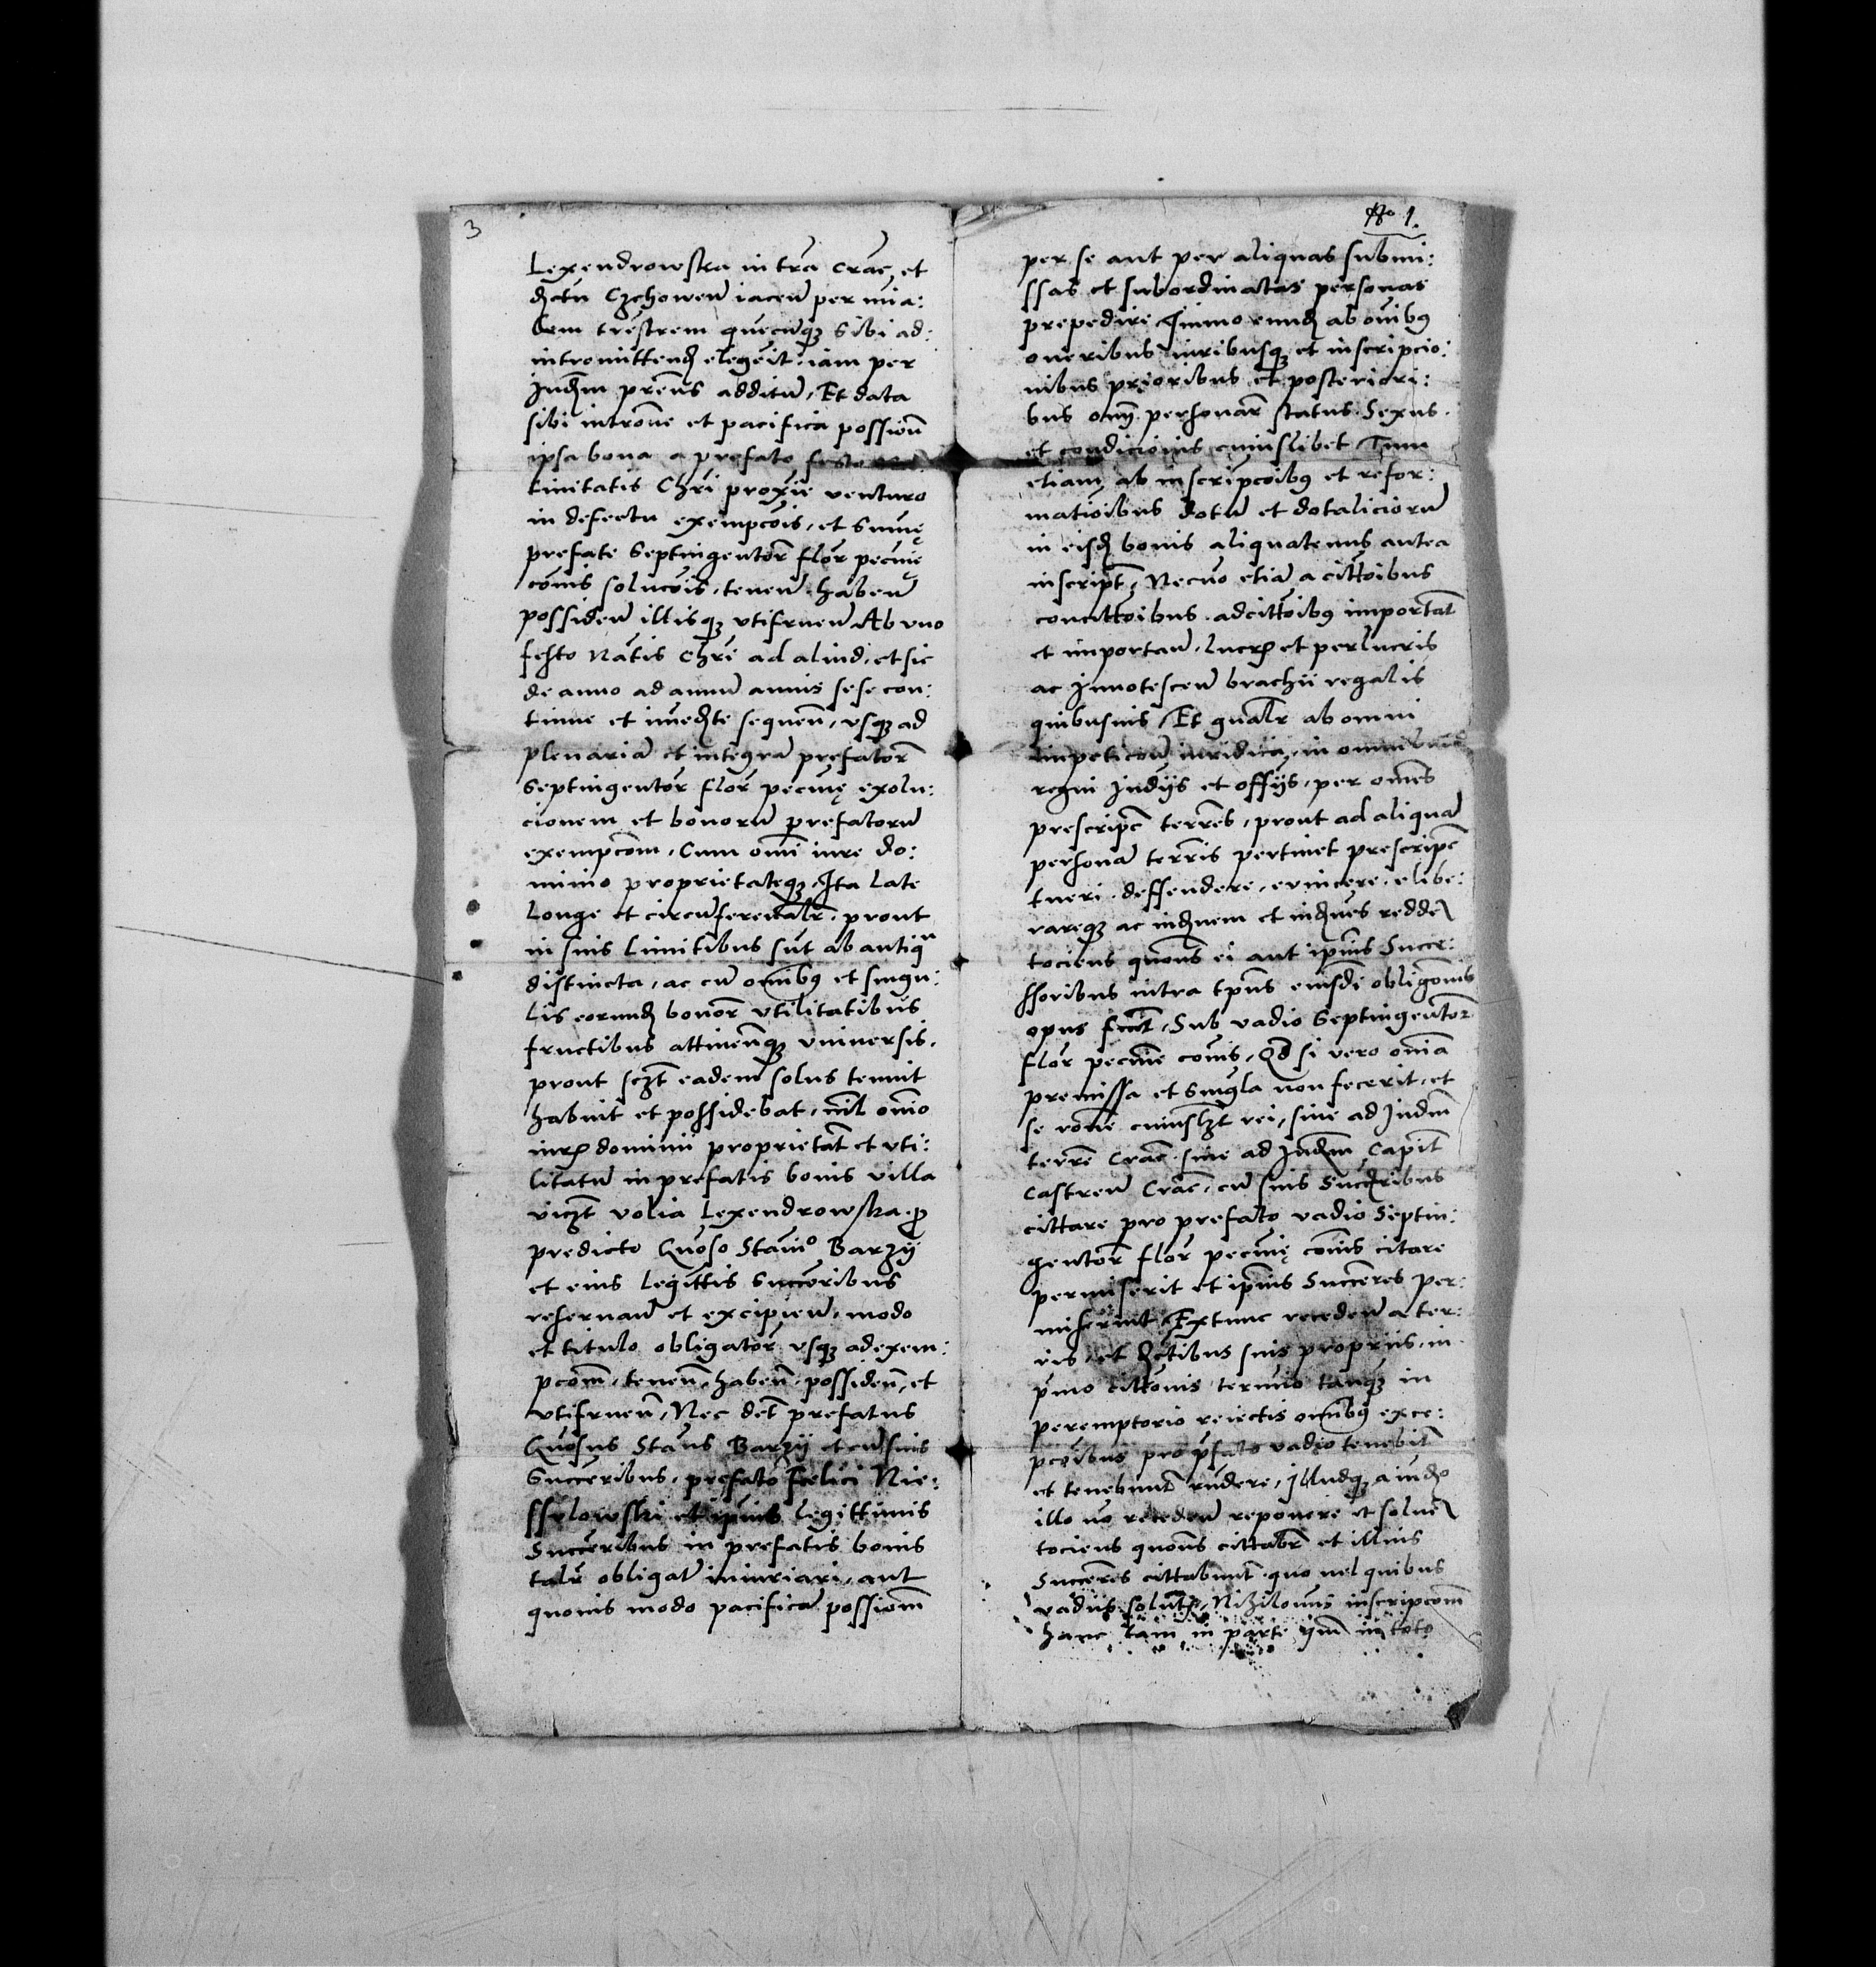 3
Lexendrowska in tra Crac, et
dctu Czchowen iacen per mia:
lem trestrem quecunqz sibi ad:
intromittend elegerit, iam per
Judm prens additu, Et data
sibi introne et pacifica possion
ipsa bona a prefato festo
tiuitatis Chri proxie venturo
in defectu exempcois, et sume
prefate Septingentor flor pecunie
cois solucois, tenen haben
possiden illisqz vtifruen Ab vno
festo Natis Chri ad aliud, et sic
de anno ad annu annis sese con:
tinue et imediate sequen, vsqz ad
plenaria et integra prefator
Septingentor flor pecunie exolu:
cionem et bonoru prefatoru
exempcom, Cum omi iure do:
minio proprietateqz, Ita late
longe et circuferencialr, prout
in suis limitibus sut ab antiquo
distincta, ac cu omibus et singu:
lis eorund bonor vtilitatibus
fructibus attinenqz vniuersis,
prout sczt eadem solus tenuit
habuit et possidebat, nil omio
iurs dominii proprietat et vti:
litatu in prefatis bonis villa
viczt volia Lexendrowska p
predicto Gnoso Stanio Barzy
et eius Legittis Succeribus
reseruan et excipien, modo
et titulo obligator vsqz ad exem:
pcom, tenen, haben, possiden, et
vtifruen, Nec det prefatus
Gnosus Stans Barzy et cu suis
Succeribus, prefato Felici Nie:
ssylowski et ipius Legittimis
Succeribus in prefatis bonis
talr obligat iniuriari, aut
quouis modo pacifica possiom
No 1.
per se aut per aliquas submi:
ssas et subordinatas personas
prepedire Immo eund ab omibus
oneribus iuribusqz et inscripcio:
nibus prioribus et posteriori:
bus omj personar status Sexus
et condicionis cuiuslibet Tum
etiam ab inscripcoibus et refor:
matioibus dotu et dotalicioru
in eisd bonis aliquatenus antea
inscript, Necno etia a cittoibus
concittoibus adcittoibus importat
et importan, lucrs et perlucris
ac Innotescen brachii regalis
quibusuis, Et gnalr ab omni
impeticoe iuridica, in omni
regni Judiis et offiis, per omes
prescripc terres, prout ad aliqua
persona terris pertinet prescripc
tueri, deffendere, euincere, elibe:
rareqz ac indnem et indnes redde
tociens quons ei aut ipius Succe:
ssoribus intra tpus eiusde obligonis
opus fuit, Sub vadio Septingentor
flor pecunie cois, Qd si vero omia
premissa et singla non fecerit, et
se rone cuiuslzt rei, siue ad Judm
terre Crac siue ad Judm Capit
Castren Crac, cu suis Succeribus
cittare pro prefato vadio Septin:
gentor flor pecunie cois citare
permiserit et ipius Succeres per:
miserint, Extunc receden a ter:
ris, et dctibus suis propriis, in
pmo cittonis termio tanqz in
peremptorio reiectis omibus exce:
pcoibus pro pfato vadio tenebit
et tenebunt rndere, illudqz a iudo
illo no receden reponere et solue
tociens quons cittabr et illius
Succeres cittabunt, quo uel quibus
vadiis solut, Nihilomus inscripcom
hanc tam in parte qm in toto